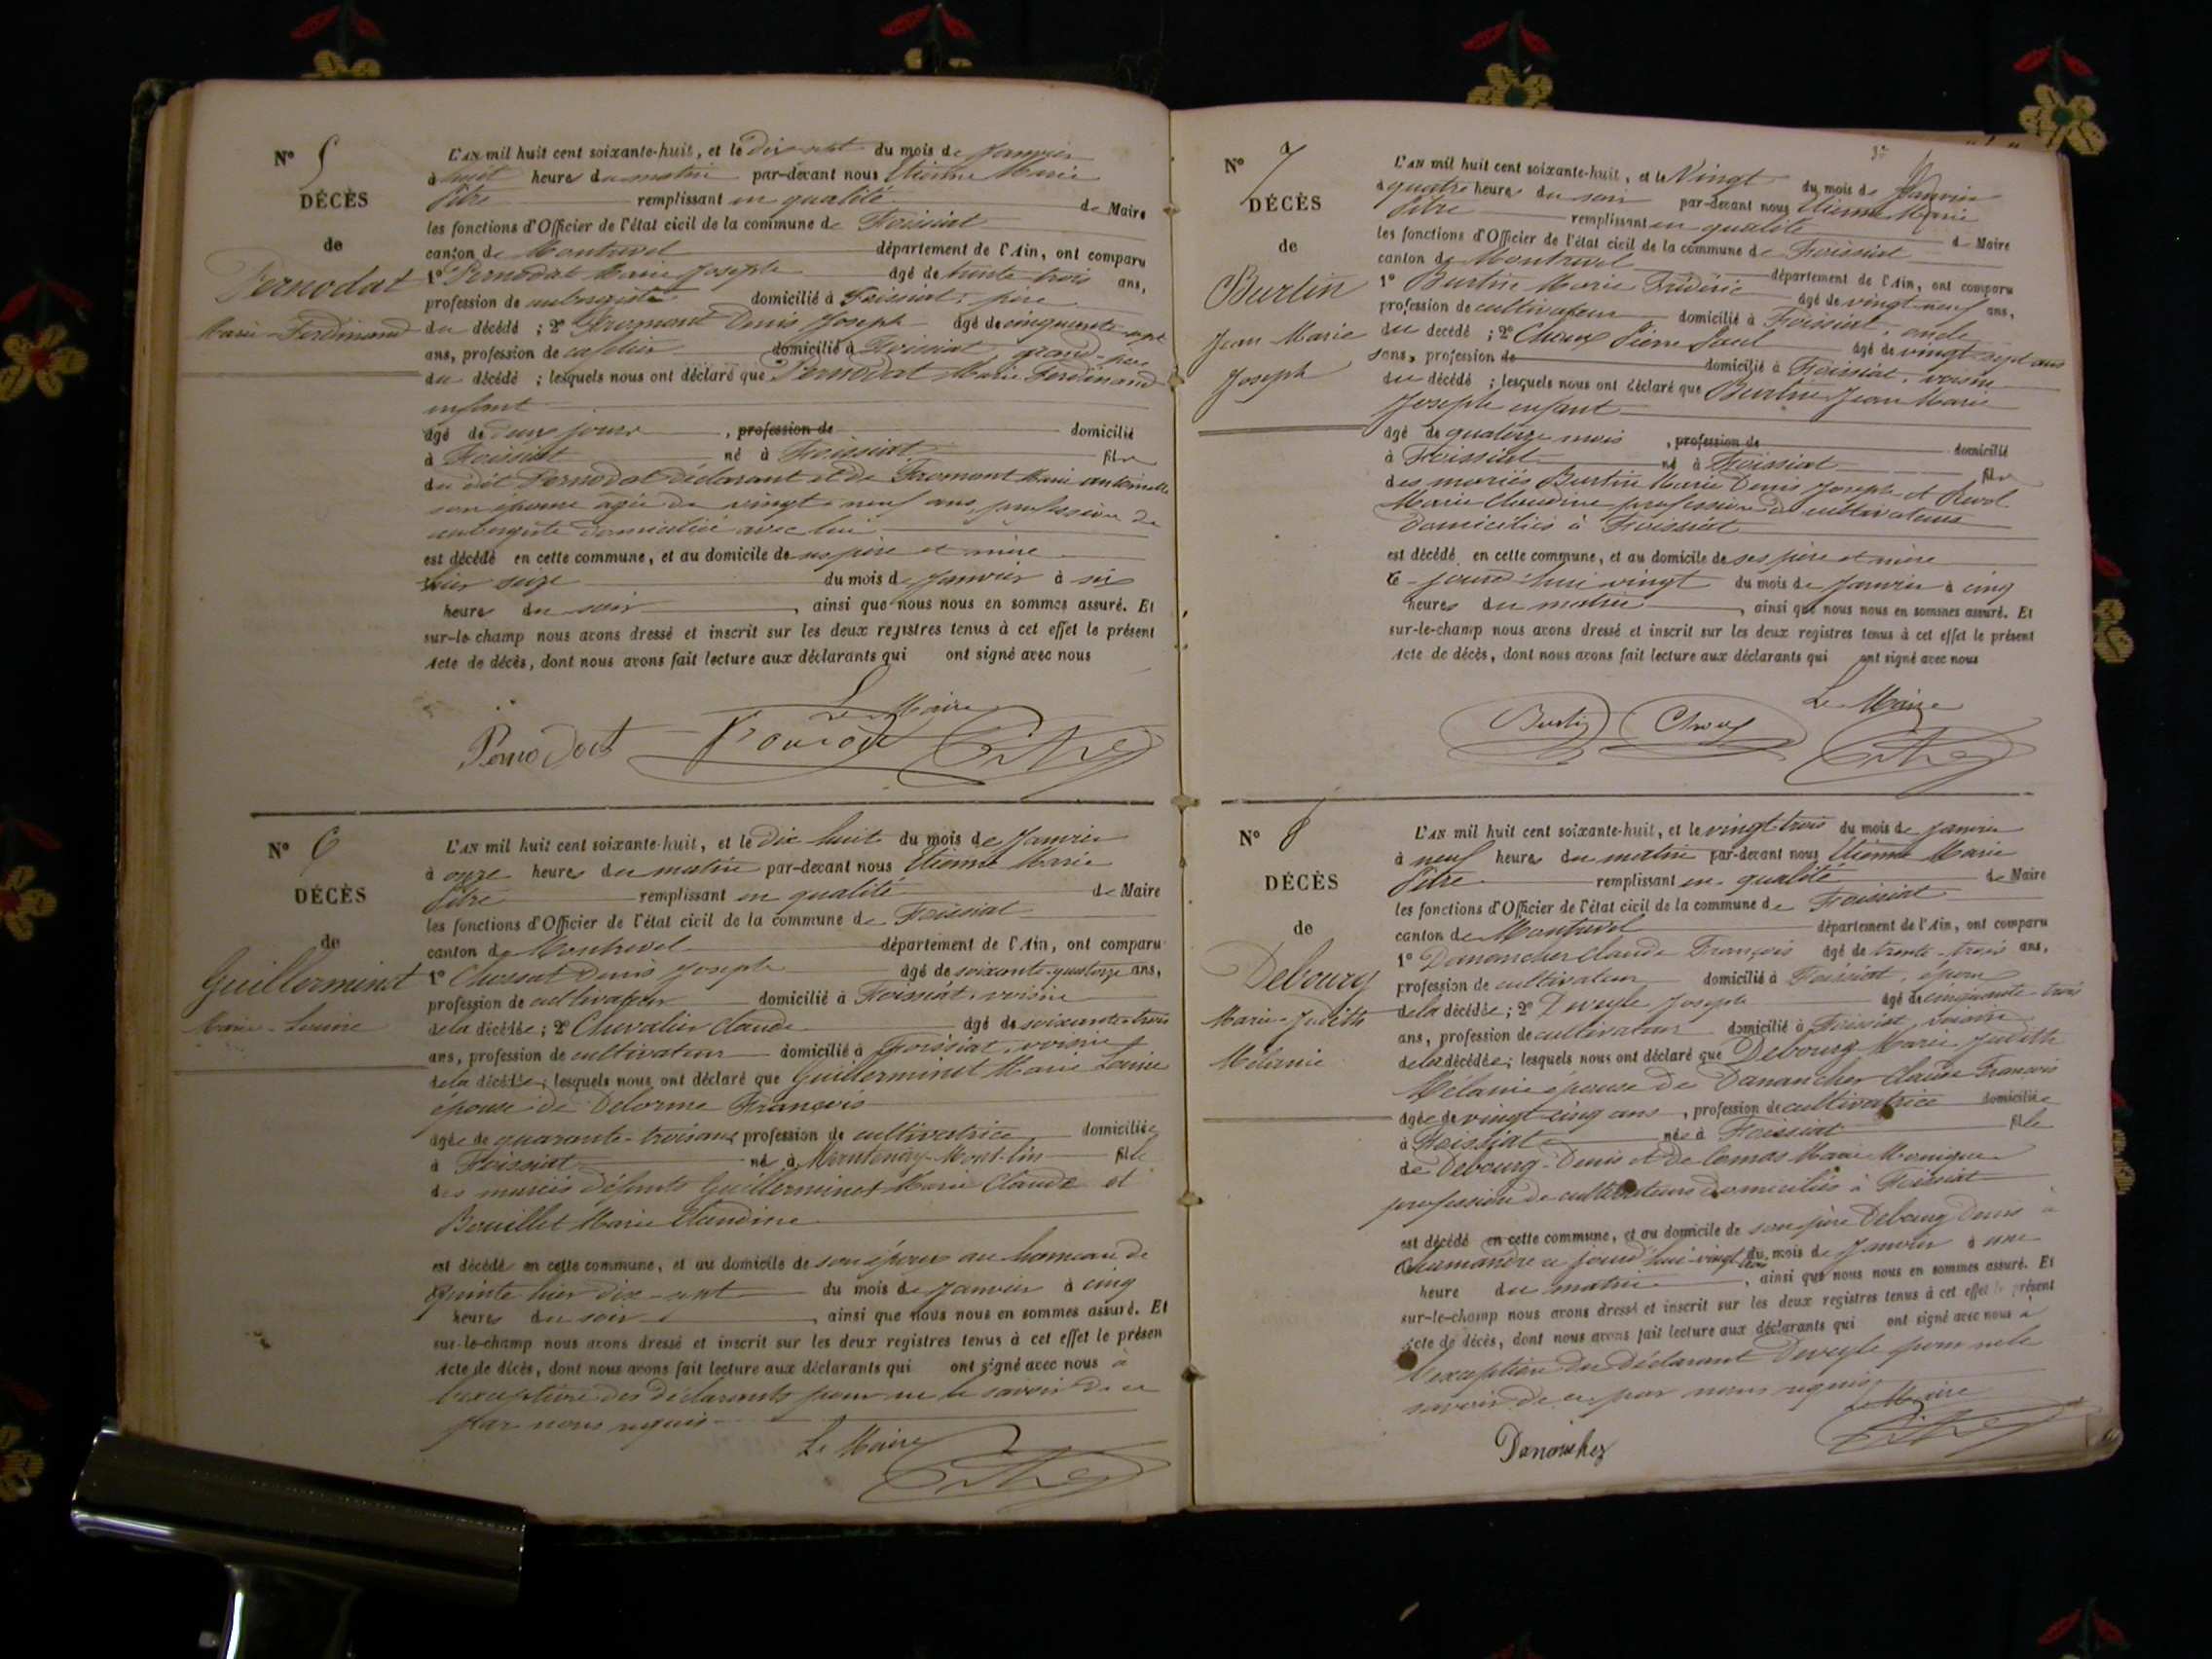 N° 5
DÉCÈS
de
Pernodat
Marie-Ferdinand
L'AN mil huit cent soixante-huit, et le dix-sept du mois de Janvier
à huit heures du matin par-devant nous Etienne Marie
Pitre remplissant en qualité de Maire
les fonctions d'Officier de l'état civil de la commune de Foissiat
canton de Montrevel département de l'Ain, ont comparu
1° Pernodat Marie Joseph âgé de trente trois ans,
profession de aubergiste domicilié à Foissiat, père
du décédé ; 2° Fromont Denis Joseph âgé de cinquante-sept
ans, profession de cafetier domicilié à Foissiat, grand-père
du décédé ; lesquels nous ont déclaré que Pernodat Marie Ferdinand
enfant
âgé de deux jours , profession de domicilié
à Foissiat né à Foissiat fils
du dit Pernodat déclarant et de Fromont Marie Antoinette
son épouse âgée de vingt-neuf ans, profession de
aubergiste domiciliée avec lui
est décédé en cette commune, et au domicile de ses père et mère
hier seize du mois de Janvier à six
heures du soir , ainsi que nous nous en sommes assuré. Et
sur-le-champ nous avons dressé et inscrit sur les deux registres tenus à cet effet le présent
Acte de décès, dont nous avons fait lecture aux déclarants qui ont signé avec nous
Le Maire
Pernodat Pitre
N° 6
DÉCÈS
de
Guillerminet
Marie-Louise
L'AN mil huit cent soixante-huit, et le Dix huit du mois de Janvier
à onze heures du matin par-devant nous Etienne Marie
Pitre remplissant en qualité de Maire
les fonctions d'Officier de l'état civil de la commune de Foissiat
canton de Montrevel département de l'Ain, ont comparu
1° Chossat Denis Joseph âgé de soixante-quatorze ans,
profession de cultivateur domicilié à Foissiat, voisin
de la décédée ; 2° Chevalier Claude âgé de soixante-trois
ans, profession de cultivateur domicilié à Foissiat, voisin
de la décédée ; lesquels nous ont déclaré que Guillerminet Marie Louise
épouse de Delorme François
âgée de quarante-trois ans profession de cultivatrice domiciliée
à Foissiat né à Mantenay-Mont-lin fille
des mariés défunts Guillerminet Marie Claude et
Bouillet Marie Claudine
est décédé en cette commune, et au domicile de son époux au hameau de
hier dix-sept du mois de Janvier à cinq
heures du soir , ainsi que nous nous en sommes assuré. Et
sur-le-champ nous avons dressé et inscrit sur les deux registres tenus à cet effet le présen
Acte de décès, dont nous avons fait lecture aux déclarants qui ont signé avec nous à
l'exception des déclarants pour ne le savoir de ce
par nous requis
Le Maire
Pitre
N° 7
DÉCÈS
de
Burtin
Jean Marie
Joseph
L'AN mil huit cent soixante-huit, et le Vingt du mois de Janvier
à quatre heures du soir par-devant nous Etienne Marie
Pitre remplissant en qualité de Maire
les fonctions d'Officier de l'état civil de la commune de Foissiat
canton de Montrevel département de l'Ain, ont comparu
1° Burtin Marie Frédéric âgé de vingt-neuf ans,
profession de cultivateur domicilié à Foissiat, oncle
du décédé ; 2° Choux Pierre Paul âgé de vingt-sept ans
sans, profession de domicilié à Foissiat, voisin
du décédé ; lesquels nous ont déclaré que Burtin Jean Marie
Joseph enfant
âgé de quatorze mois , profession de domicilié
à Foissiat né à Foissiat fils
des mariés Burtin Marie Denis Joseph et Revol
Marie Claudine profession de cultivateurs
domiciliés à Foissiat
est décédé en cette commune, et au domicile de ses père et mère
ce-jourd'hui vingt du mois de Janvier à cinq
heures du matin , ainsi que nous nous en sommes assuré. Et
sur-le-champ nous avons dressé et inscrit sur les deux registres tenus à cet effet le présent
Acte de décès, dont nous avons fait lecture aux déclarants qui ont signé avec nous
Le Maire
Burtin Choux Pitre
N° 8
DÉCÈS
de
Debourg
Marie-Judith
Mélanie
L'AN mil huit cent soixante-huit, et le vingt-trois du mois de Janvier
à neuf heures du matin par-devant nous Etienne Marie
Pitre remplissant en qualité de Maire
les fonctions d'Officier de l'état civil de la commune de Foissiat
canton de Montrevel département de l'Ain, ont comparu
1° Danancher Claude François âgé de trente-trois ans,
profession de cultivateur domicilié à Foissiat, époux
de la décédée ; 2° Deveyle Joseph âgé de cinquante-trois
ans, profession de cultivateur domicilié à Foissiat, voisin
de la décédée ; lesquels nous ont déclaré que Debourg Marie Judith
Mélanie épouse de Danancher Claude François
âgée de vingt-cinq ans , profession de cultivatrice domiciliée
à Foissiat née à Foissiat fille
de Debourg Denis et de Comas Marie Monique
profession de cultivateurs domiciliés à Foissiat
est décédé en cette commune, et au domicile de son père Debourg Denis à
ce jourd'hui vingt trois du mois de Janvier à une
heure du matin , ainsi que nous nous en sommes assuré. Et
sur-le-champ nous avons dressé et inscrit sur les deux registres tenus à cet effet le présent
Acte de décès, dont nous avons fait lecture aux déclarants qui ont signé avec nous à
l'exception du déclarant Deveyle pour ne le
savoir de ce par nous requis
Le Maire
Pitre